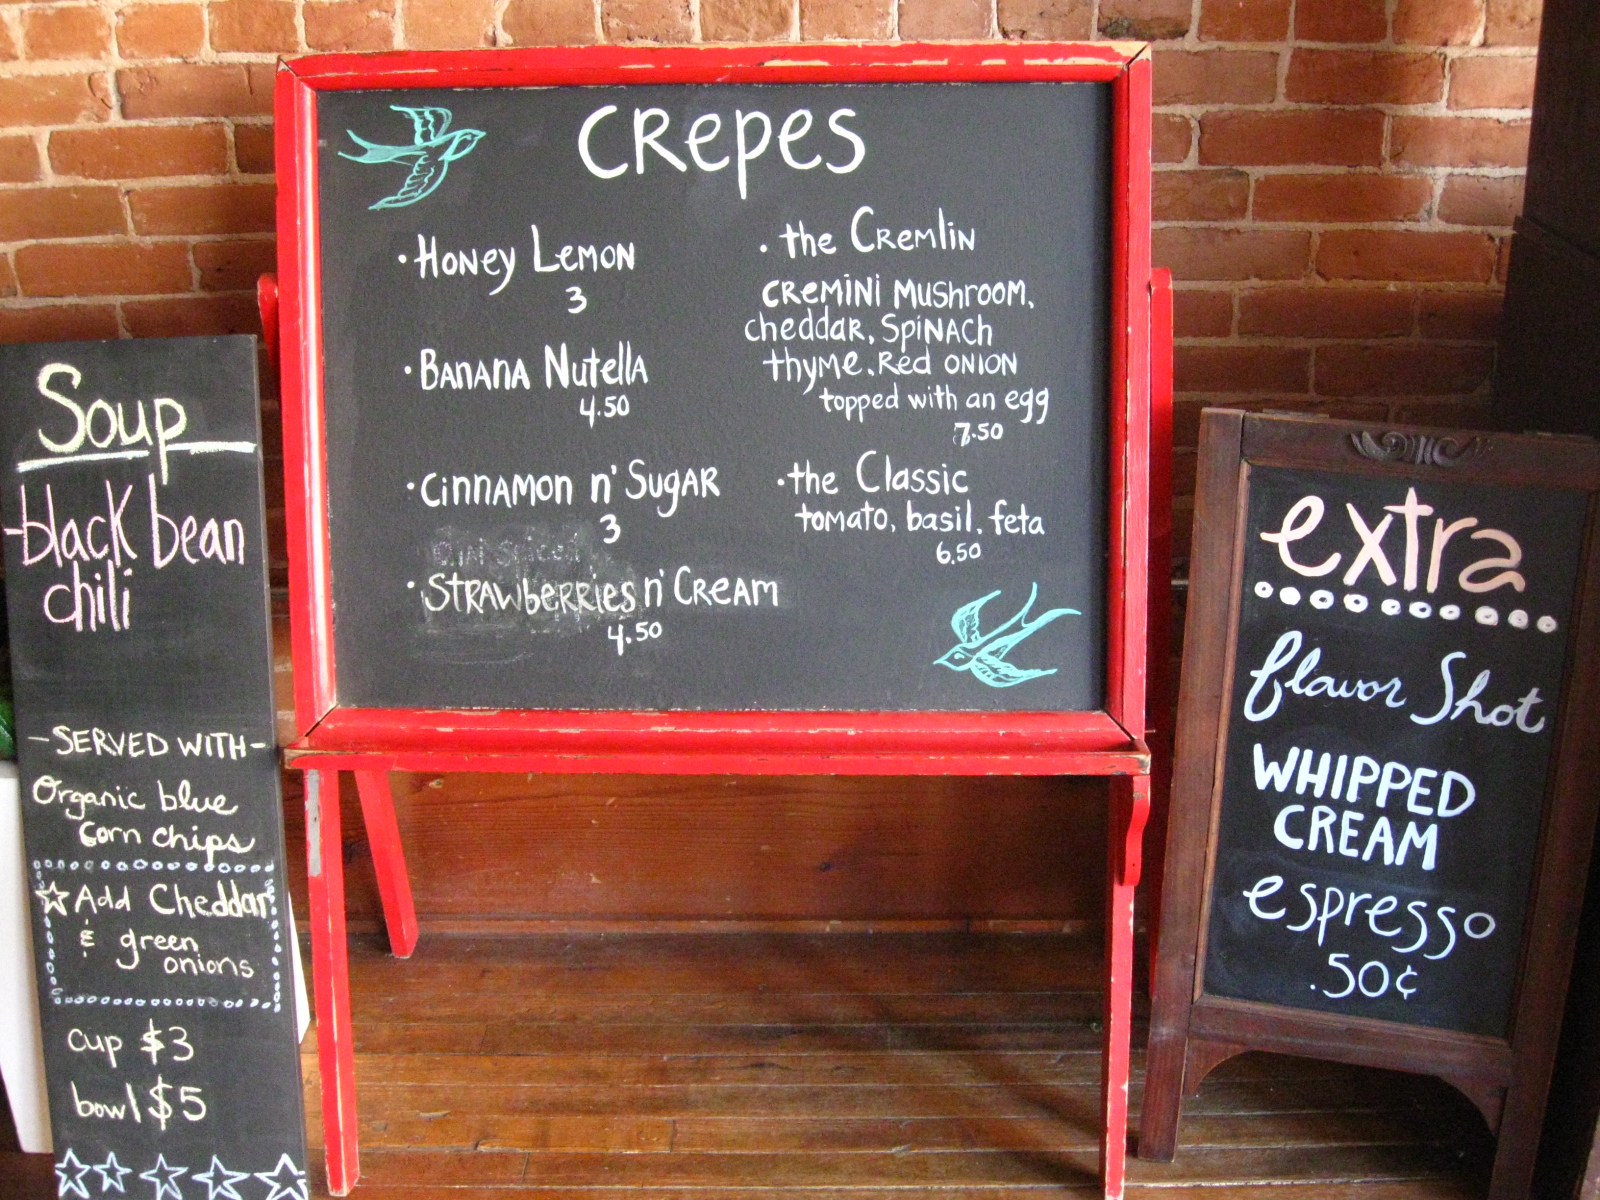 Soup
-black bean
chili
-SERVED WITH-
Organic blue
corn chips
Add Cheddar
& green
onions
cup $3
bowl $5
CRepes
• Honey Lemon
3
• Banana Nutella
4.50
• Cinnamon n' Sugar
3
• Strawberries n' Cream
4.50
• the Cremlin
CREMINI Mushroom,
cheddar, Spinach
thyme, Red onion
topped with an egg
7.50
• the Classic
tomato, basil, feta
6.50
extra
flavor Shot
WHIPPED
CREAM
espresso
.50¢